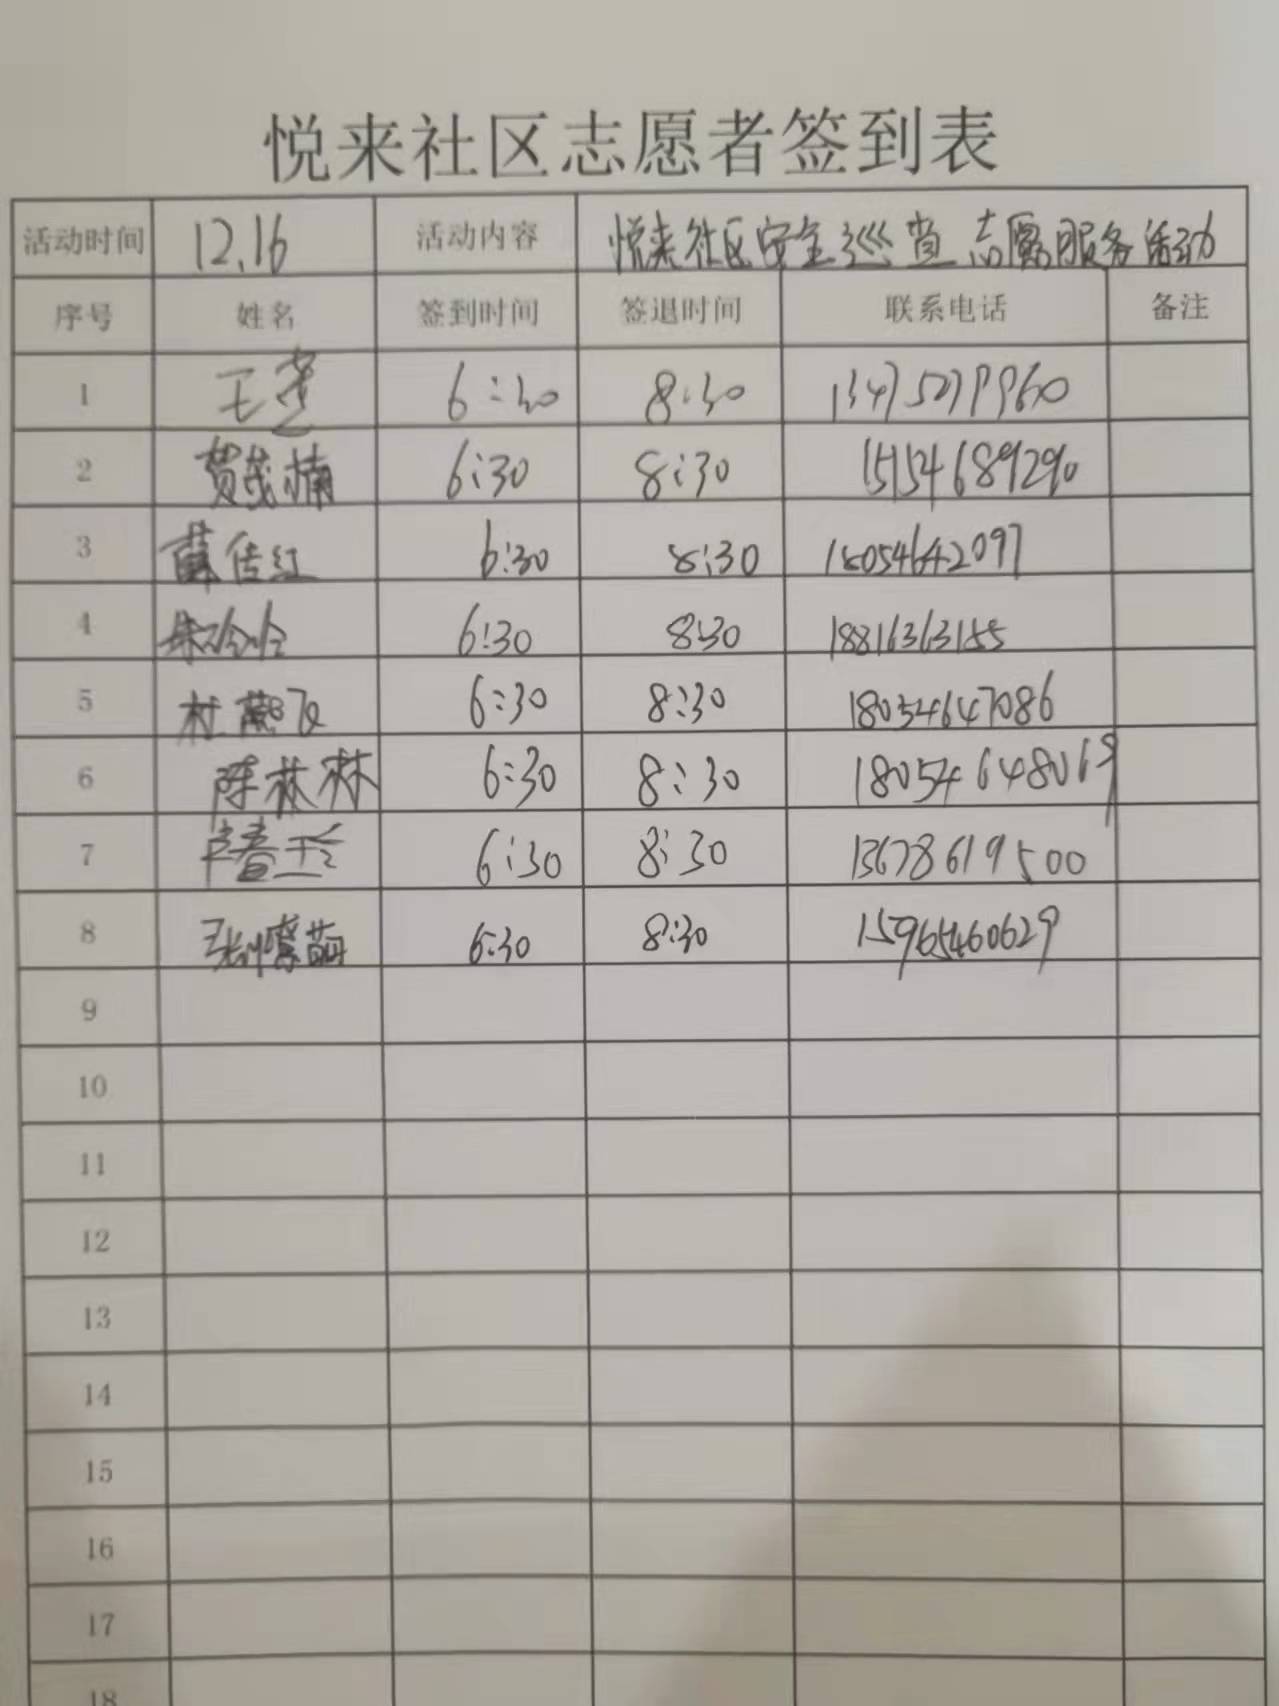 悦来社区志愿者签到表
活动时间 12.16 活动内容 悦来社区安全巡查志愿服务活动
序号 姓名 签到时间 签退时间 联系电话 备注
1 6:30 8:30
2 贾茂楠 6:30 8:30 15154689290
3 6:30 8:30 18054642097
4 6:30 8:30 18816363155
5 杜燕飞 6:30 8:30 18054647086
6 陈林林 6:30 8:30 18054648069
7 6:30 8:30 13678619500
8 6:30 8:30 15965460629
9
10
11
12
13
14
15
16
17
18